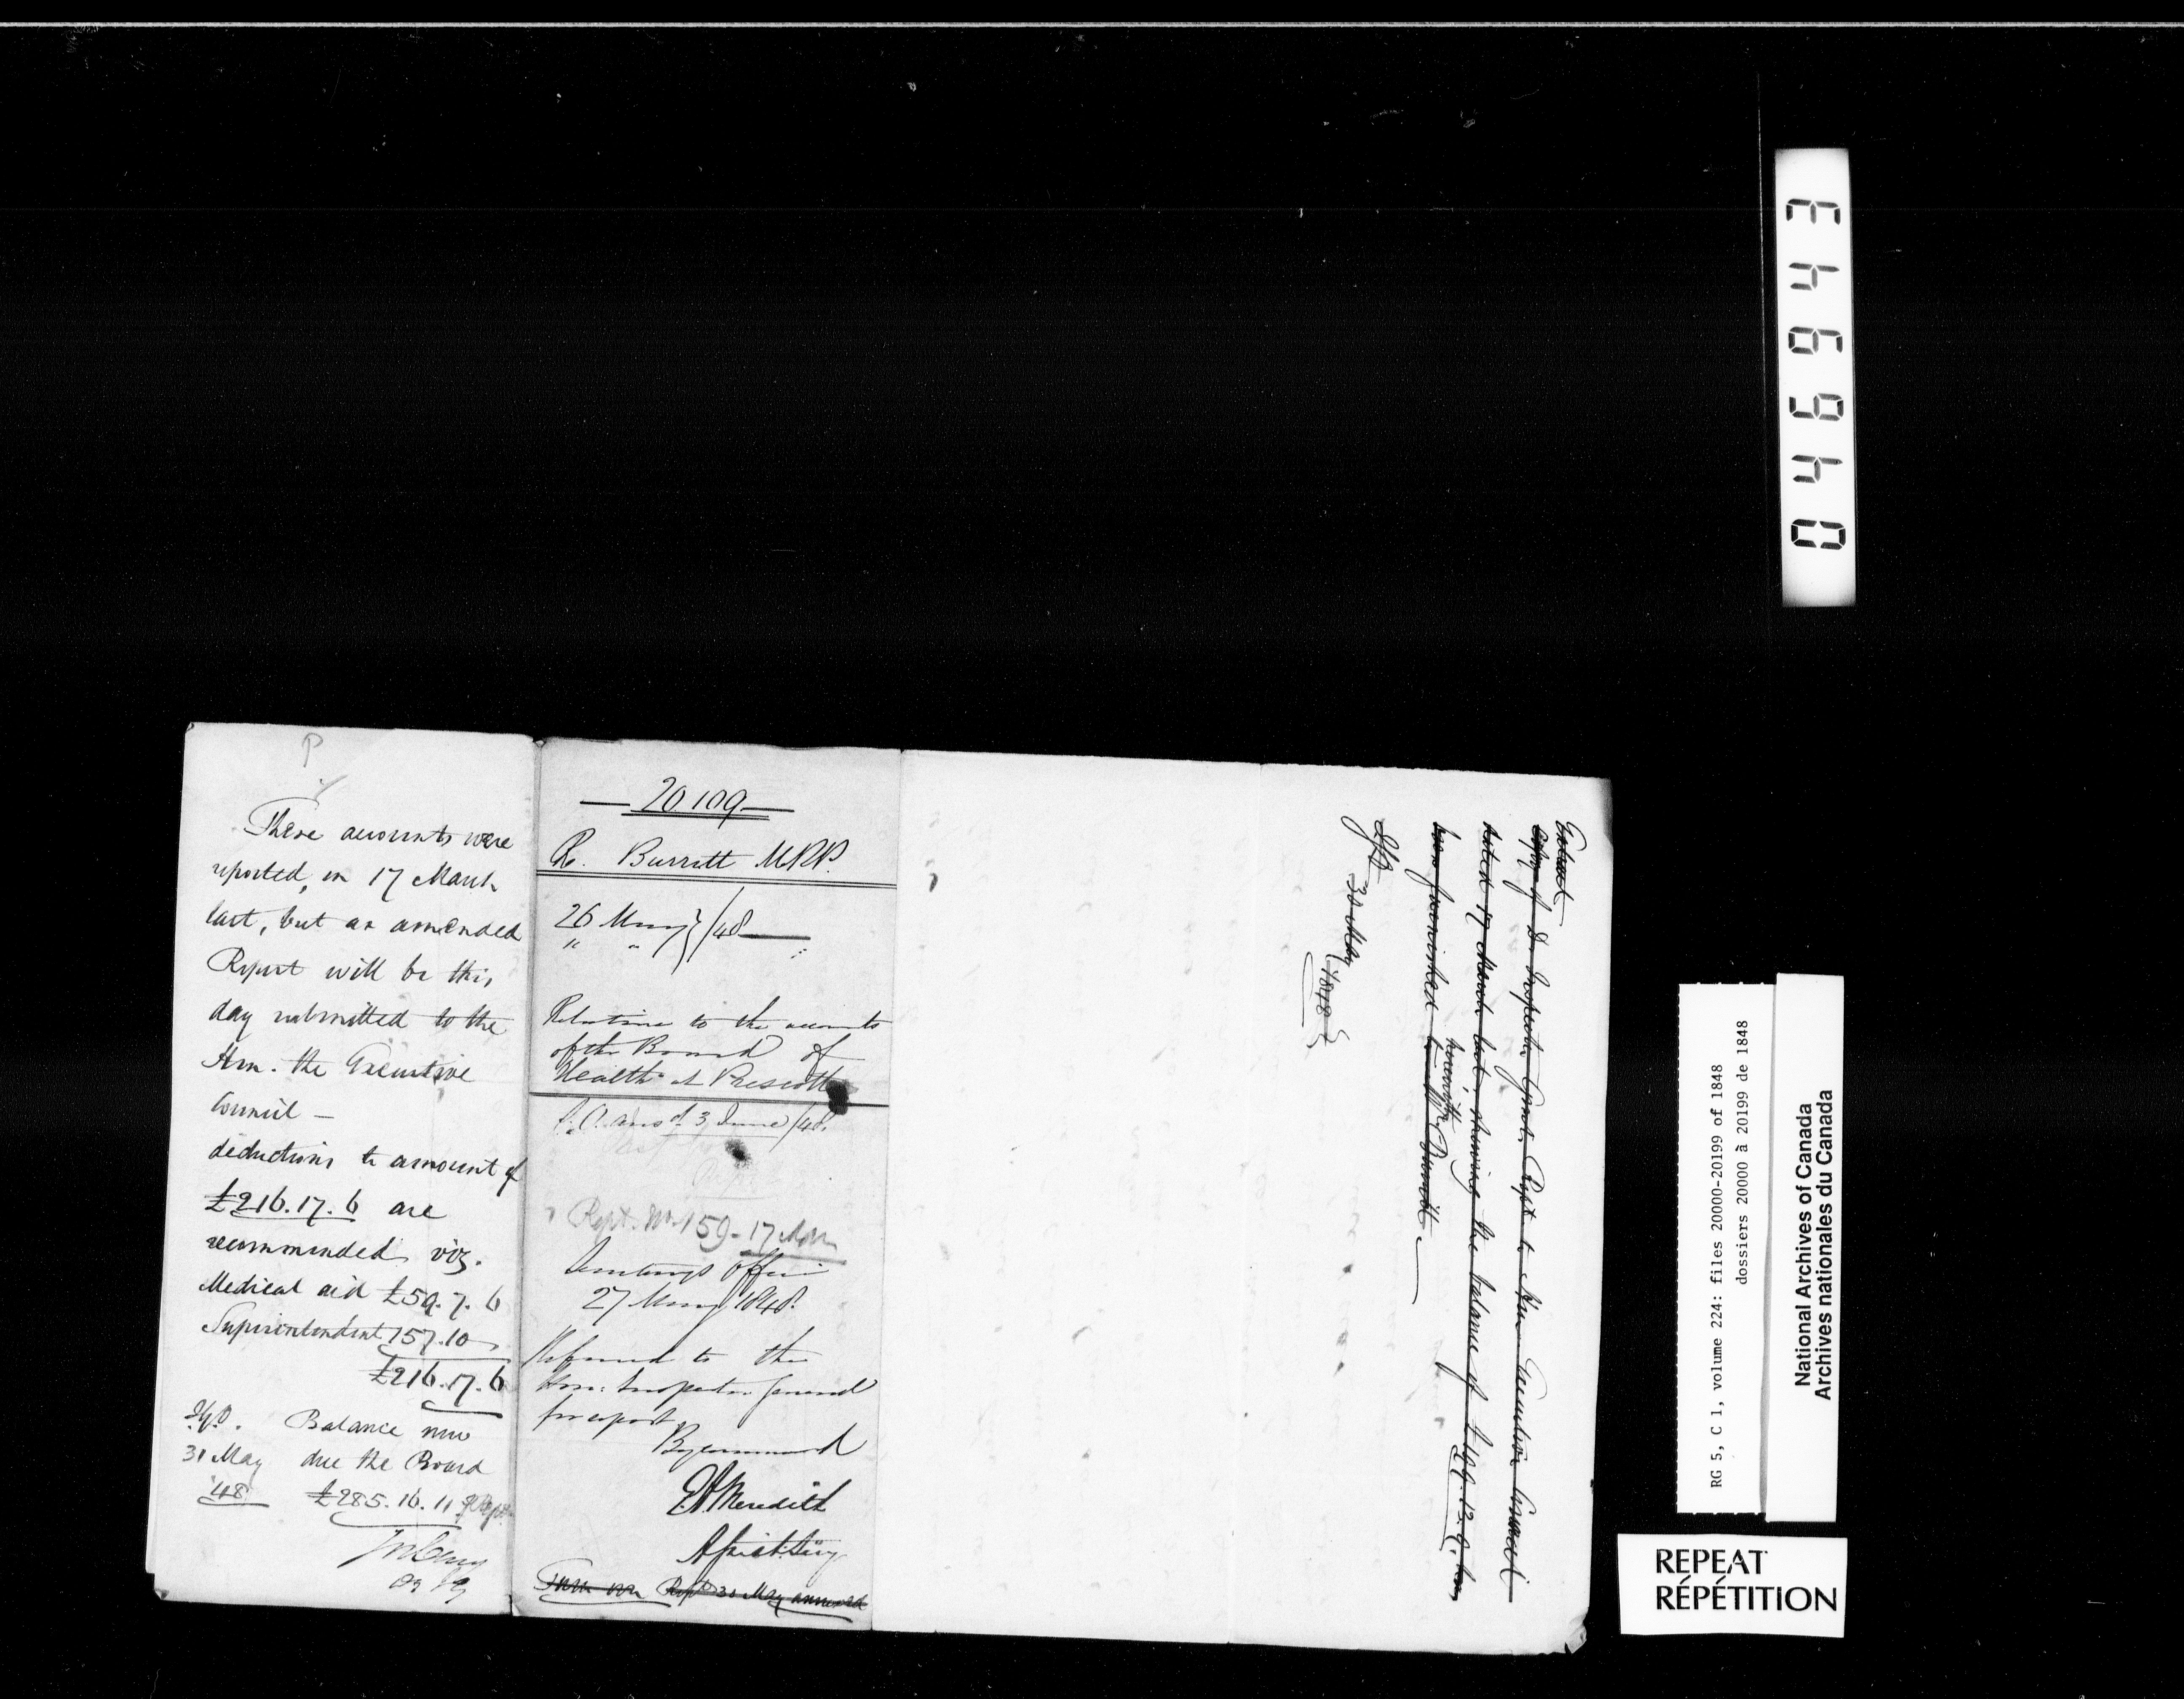 P
These accounts were
reported, on 17 March
last, but an amended
Report will be this
day submitted to the
Hon. the Executive
Council —
deductions to amount of
£216.17.6 are
recommended viz.
Medical aid £59.7.6
Superintendent 157.10
£216.17.6
Balance now
31 May due the Board
'48 £285.16.11
20109
R. Burritt MPP.
26 May } /48
" "
Relative to the accounts
of the Board of
Health at Prescott
ans d 3 June /48.
Rept. No. 159 - 17 Mar
Secretary's Office
27 May 1848.
Referred to the
Hon: Inspector General
for report
By command
E A Meredith
Assist. Secy
Rept 30 May annexed
Extract
Copy of D. Inspector Genl. Rept to the Executive Council
dated 17 March last, shewing the balance of £499.12.9, has
been furnished to Mr Burritt. —
herewith
30 May 1848 }
0 4 6 9 4 3
RG 5, C 1, volume 224: files 20000-20199 of 1848
dossiers 20000 à 20199 de 1848
National Archives of Canada
Archives nationales du Canada
REPEAT
RÉPÉTITION